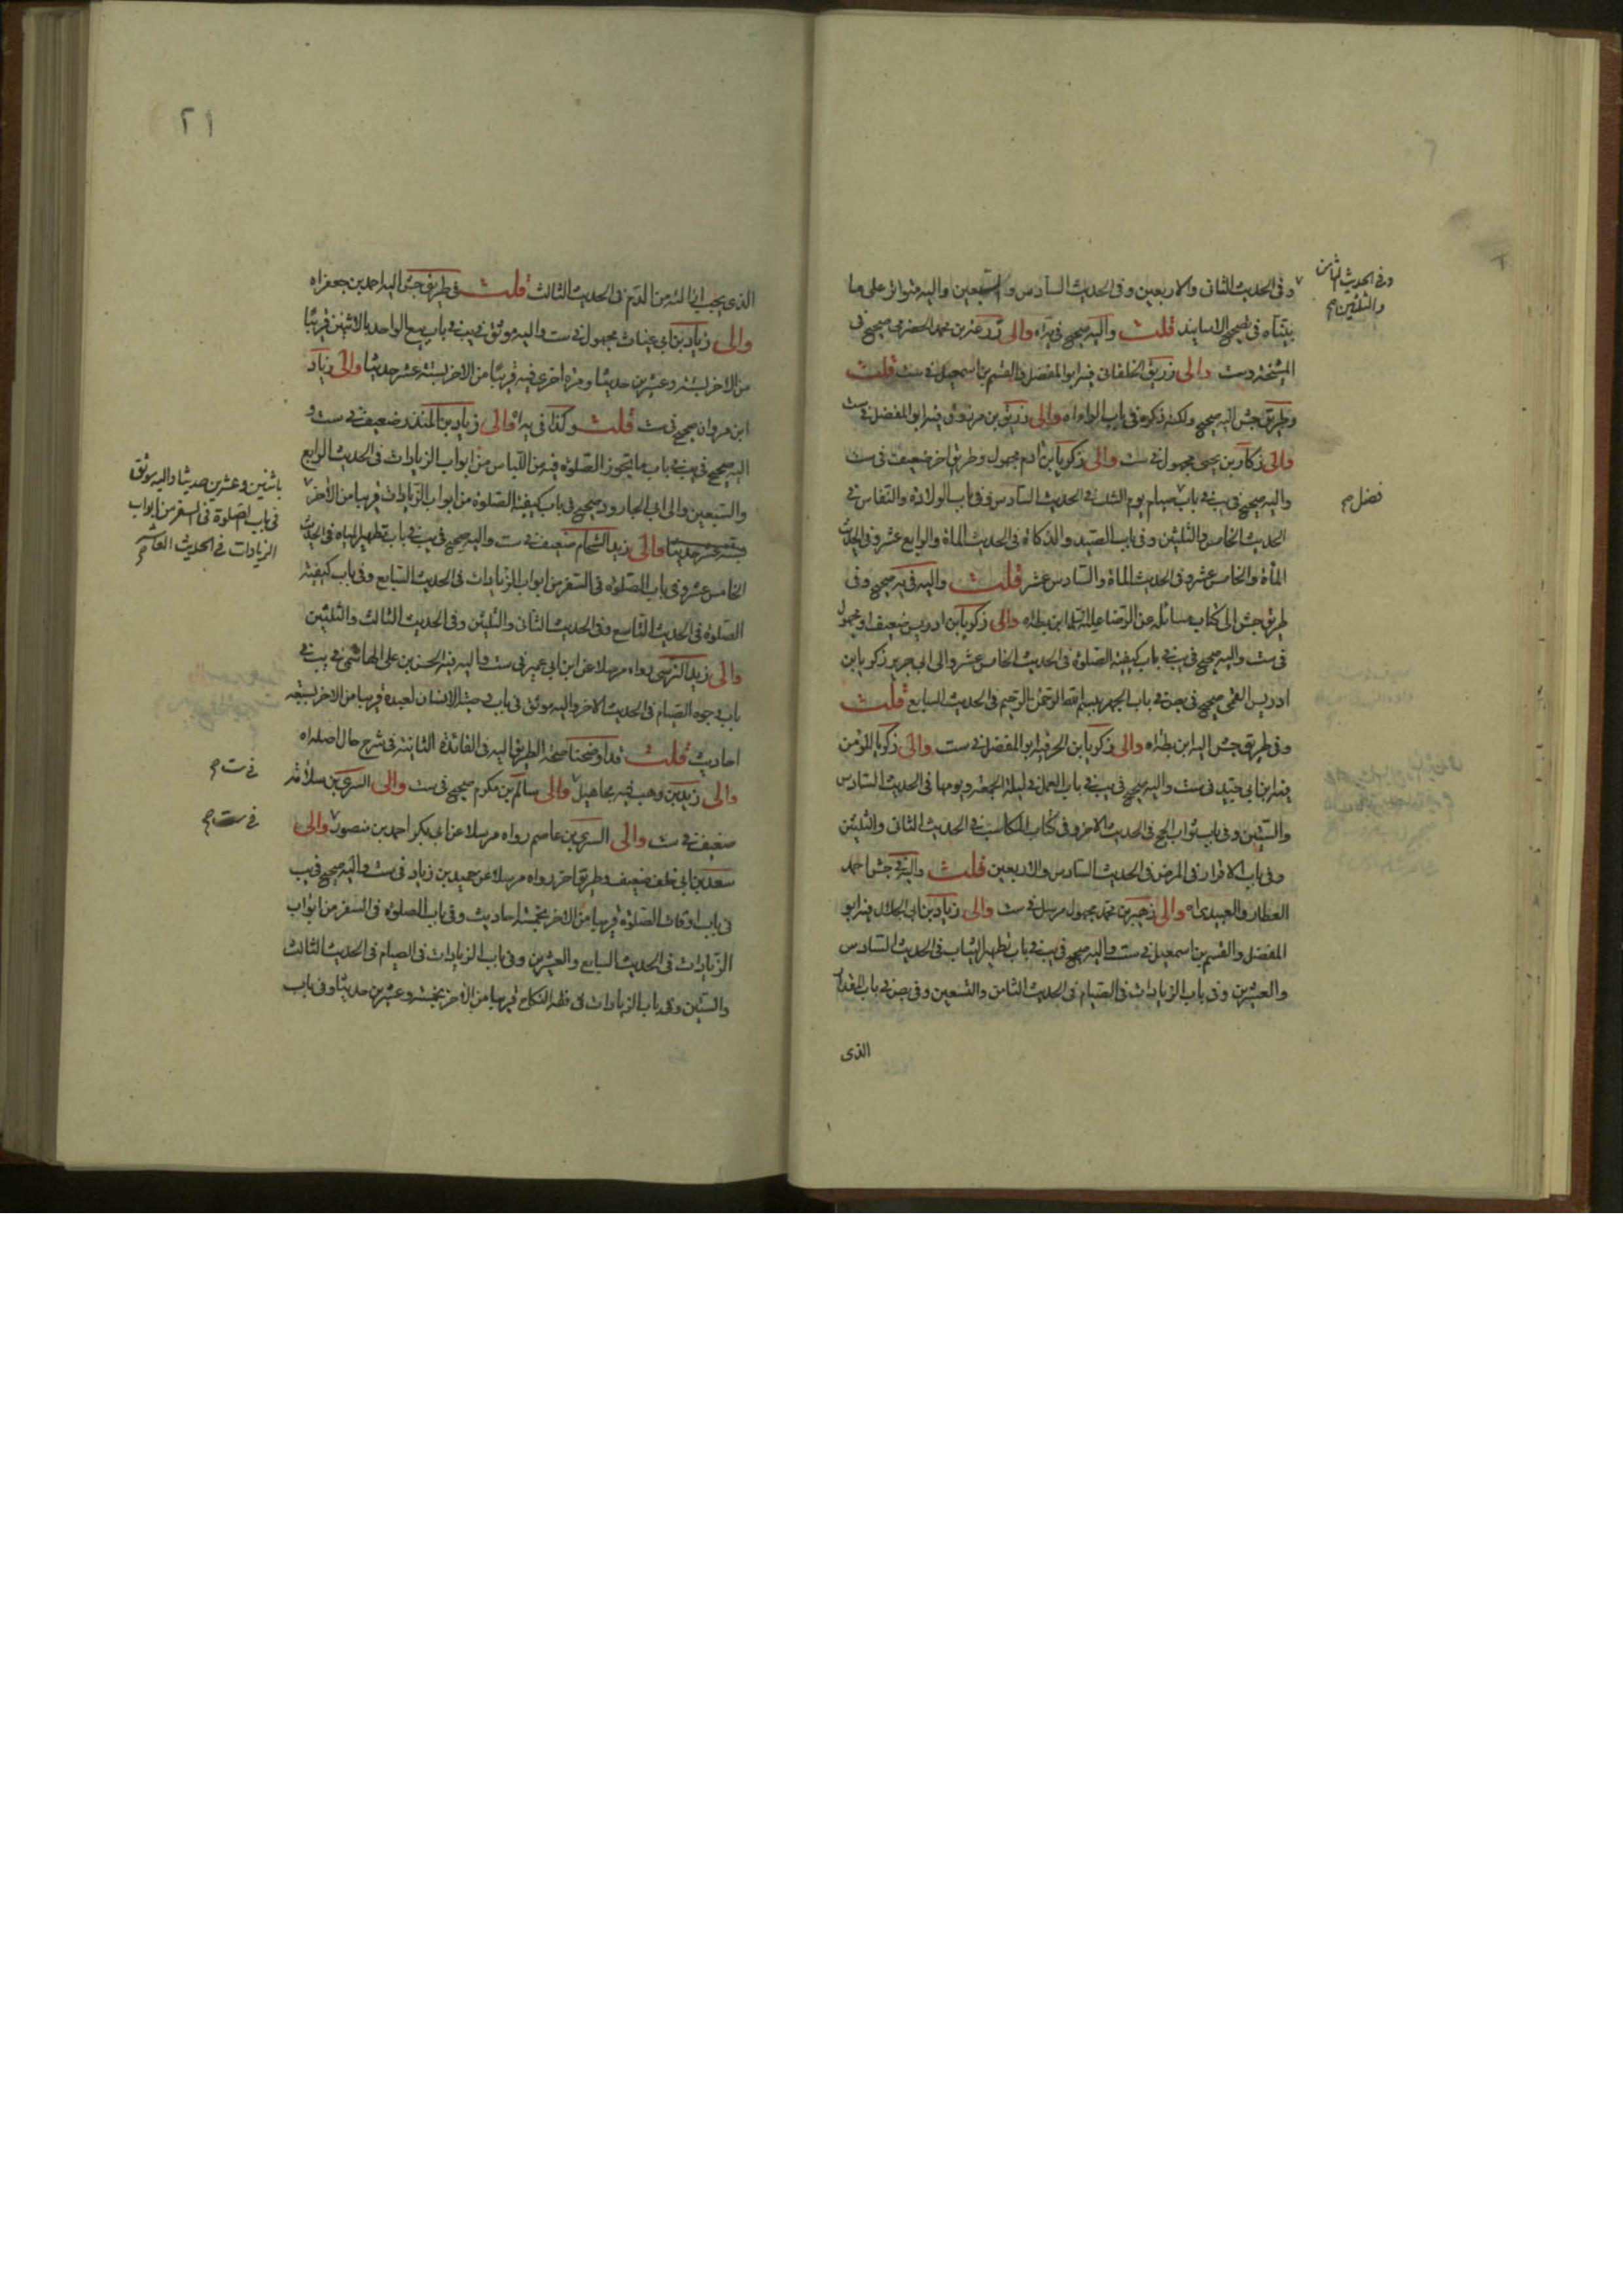 وفى الحديث الثانى والاربعين وفى الحديث السادس والسبعين واليه متواتر على ما
وفى الحديث الثامن
والثلثين صح
بيناه فى تصحيح الاسانيد قلت واليه صحيح فى يه اه والى زرعة بن محمد الحضرمى صحيح فى
المشيخة وست والى زريق الخلقانى فيه ابو المفضل والقسم بن اسمعيل فى ست قلت
وطريق جش اليه صحيح ولكنه ذكره فى باب الراء اه والى زريق بن مرزوق فيه ابو المفضل فى ست
والى زكار بن يحيى مجهول فى ست والى زكريا بن ادم مجهول وطريق اخر ضعيف فى ست
واليه صحيح فى يب فى باب صيام يوم الشك فى الحديث السادس وفى باب الولادة والنفاس فى
فضل صح
الحديث الخامس والثلثين وفى باب الصيد والذكاة فى الحديث المأة والرابع عشر وفى الحديث
المأة والخامس عشر وفى الحديث المأة والسادس عشر قلت واليه فى يه صحيح وفى
طريق جش الى كتاب مسائله عن الرضا عليه السلم ابن بطه اه والى زكريا بن ادريس ضعيف او مجهول
فى ست واليه صحيح فى يب فى باب كيفية الصلوة فى الحديث الخامس عشر والى ابى جرير زكريا بن
ادريس القمى صحيح فى بص فى باب الجهر ببسم الله الرحمن الرحيم فى الحديث السابع قلت
وفى طريق جش اليه ابن بطه اه والى زكريا بن الحر فيه ابو المفضل فى ست والى زكريا المؤمن
فيه ابن ابى جيد فى ست واليه صحيح فى يب فى باب العمل فى ليلة الجمعة ويومها فى الحديث السادس
والستين وفى باب ثواب الحج فى الحديث الاخر وفى كتاب المكاسب فى الحديث الثانى والثلثين
وفى باب الاقرار فى المرض فى الحديث السادس والاربعين قلت واليه فى جش احمد
العطار والعبيدى اه والى زحير بن محمد مجهول مرسل فى ست والى زياد بن ابى الحلال فيه ابو
المفضل والقسم بن اسمعيل فى ست واليه صحيح فى يب فى باب تطهير الثياب فى الحديث السادس
والعشرين وفى باب الزيادات فى الصيام فى الحديث الثامن والتسعين وفى بص فى باب المقدار
الذى
٢١
الذى يجب ازالته من الدم فى الحديث الثالث قلت فى طريق جش اليه احمد بن جعفر اه
والى زياد بن ابى غياث مجهول فى ست واليه موثق فى يب فى باب بيع الواحد بالاثنين قريبا
من الاخر بستة وعشرين حديثا ومرة اخرى فيه قريبا من الاخر بستة عشر حديثا والى زياد
ابن مروان صحيح فى ست قلت وكذا فى يه اه والى زياد بن المنذر ضعيف فى ست و
اليه صحيح فى يب فى باب ما يجوز الصلوة فيه من اللباس من ابواب الزيادات فى الحديث الرابع
والتسعين والى ابى الجارود صحيح فى باب كيفية الصلوة من ابواب الزيادات قريبا من الاخر
باثنين وعشرين حديثا واليه موثق
فى باب الصلوة فى السفر من ابواب
الزيادات فى الحديث العاشر صح
بتسعة عشر حديثا والى زيد الشحام ضعيف فى ست واليه صحيح فى يب فى باب تطهير المياه فى الحديث
الخامس عشر وفى باب الصلوة فى السفر من ابواب الزيادات فى الحديث السابع وفى باب كيفية
الصلوة فى الحديث التاسع وفى الحديث الثانى والثلثين وفى الحديث الثالث والثلثين
والى زيد النرسى رواه مرسلا عن ابن ابى عمير فى ست واليه فيه الحسن بن على الهاشمى فى يب فى
باب وجوه الصيام فى الحديث الاخر واليه موثق فى باب وصية الانسان لعبده قريبا من الاخر بسبعة
احاديث قلت قد اوضحنا صحة الطريق اليه فى الفائدة الثانية فى شرح حال اصله اه
والى زيد بن وهب فيه مجاهيل والى سالم بن مكرم صحيح فى ست والى السرى بن سلامة
فى ست صح
ضعيف فى ست والى السرى بن عاصم رواه مرسلا عن ابى بكر احمد بن منصور والى
فى ست صح
سعد بن ابى خلف ضعيف وطريق اخر رواه مرسلا عن حميد بن زياد فى ست واليه صحيح فى يب
فى باب اوقات الصلوة قريبا من الاخر بخمسة احاديث وفى باب الصلوة فى السفر من ابواب
الزيادات فى الحديث السابع والعشرين وفى باب الزيادات فى الصيام فى الحديث الثالث
والستين وفى باب الزيادات فى فقه النكاح قريبا من الاخر بخمسة وعشرين حديثا وفى باب